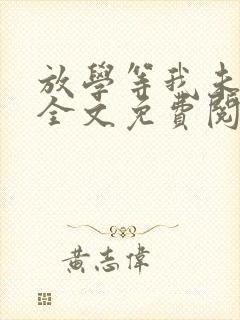 放學等我未
全文免費閱
黃志偉